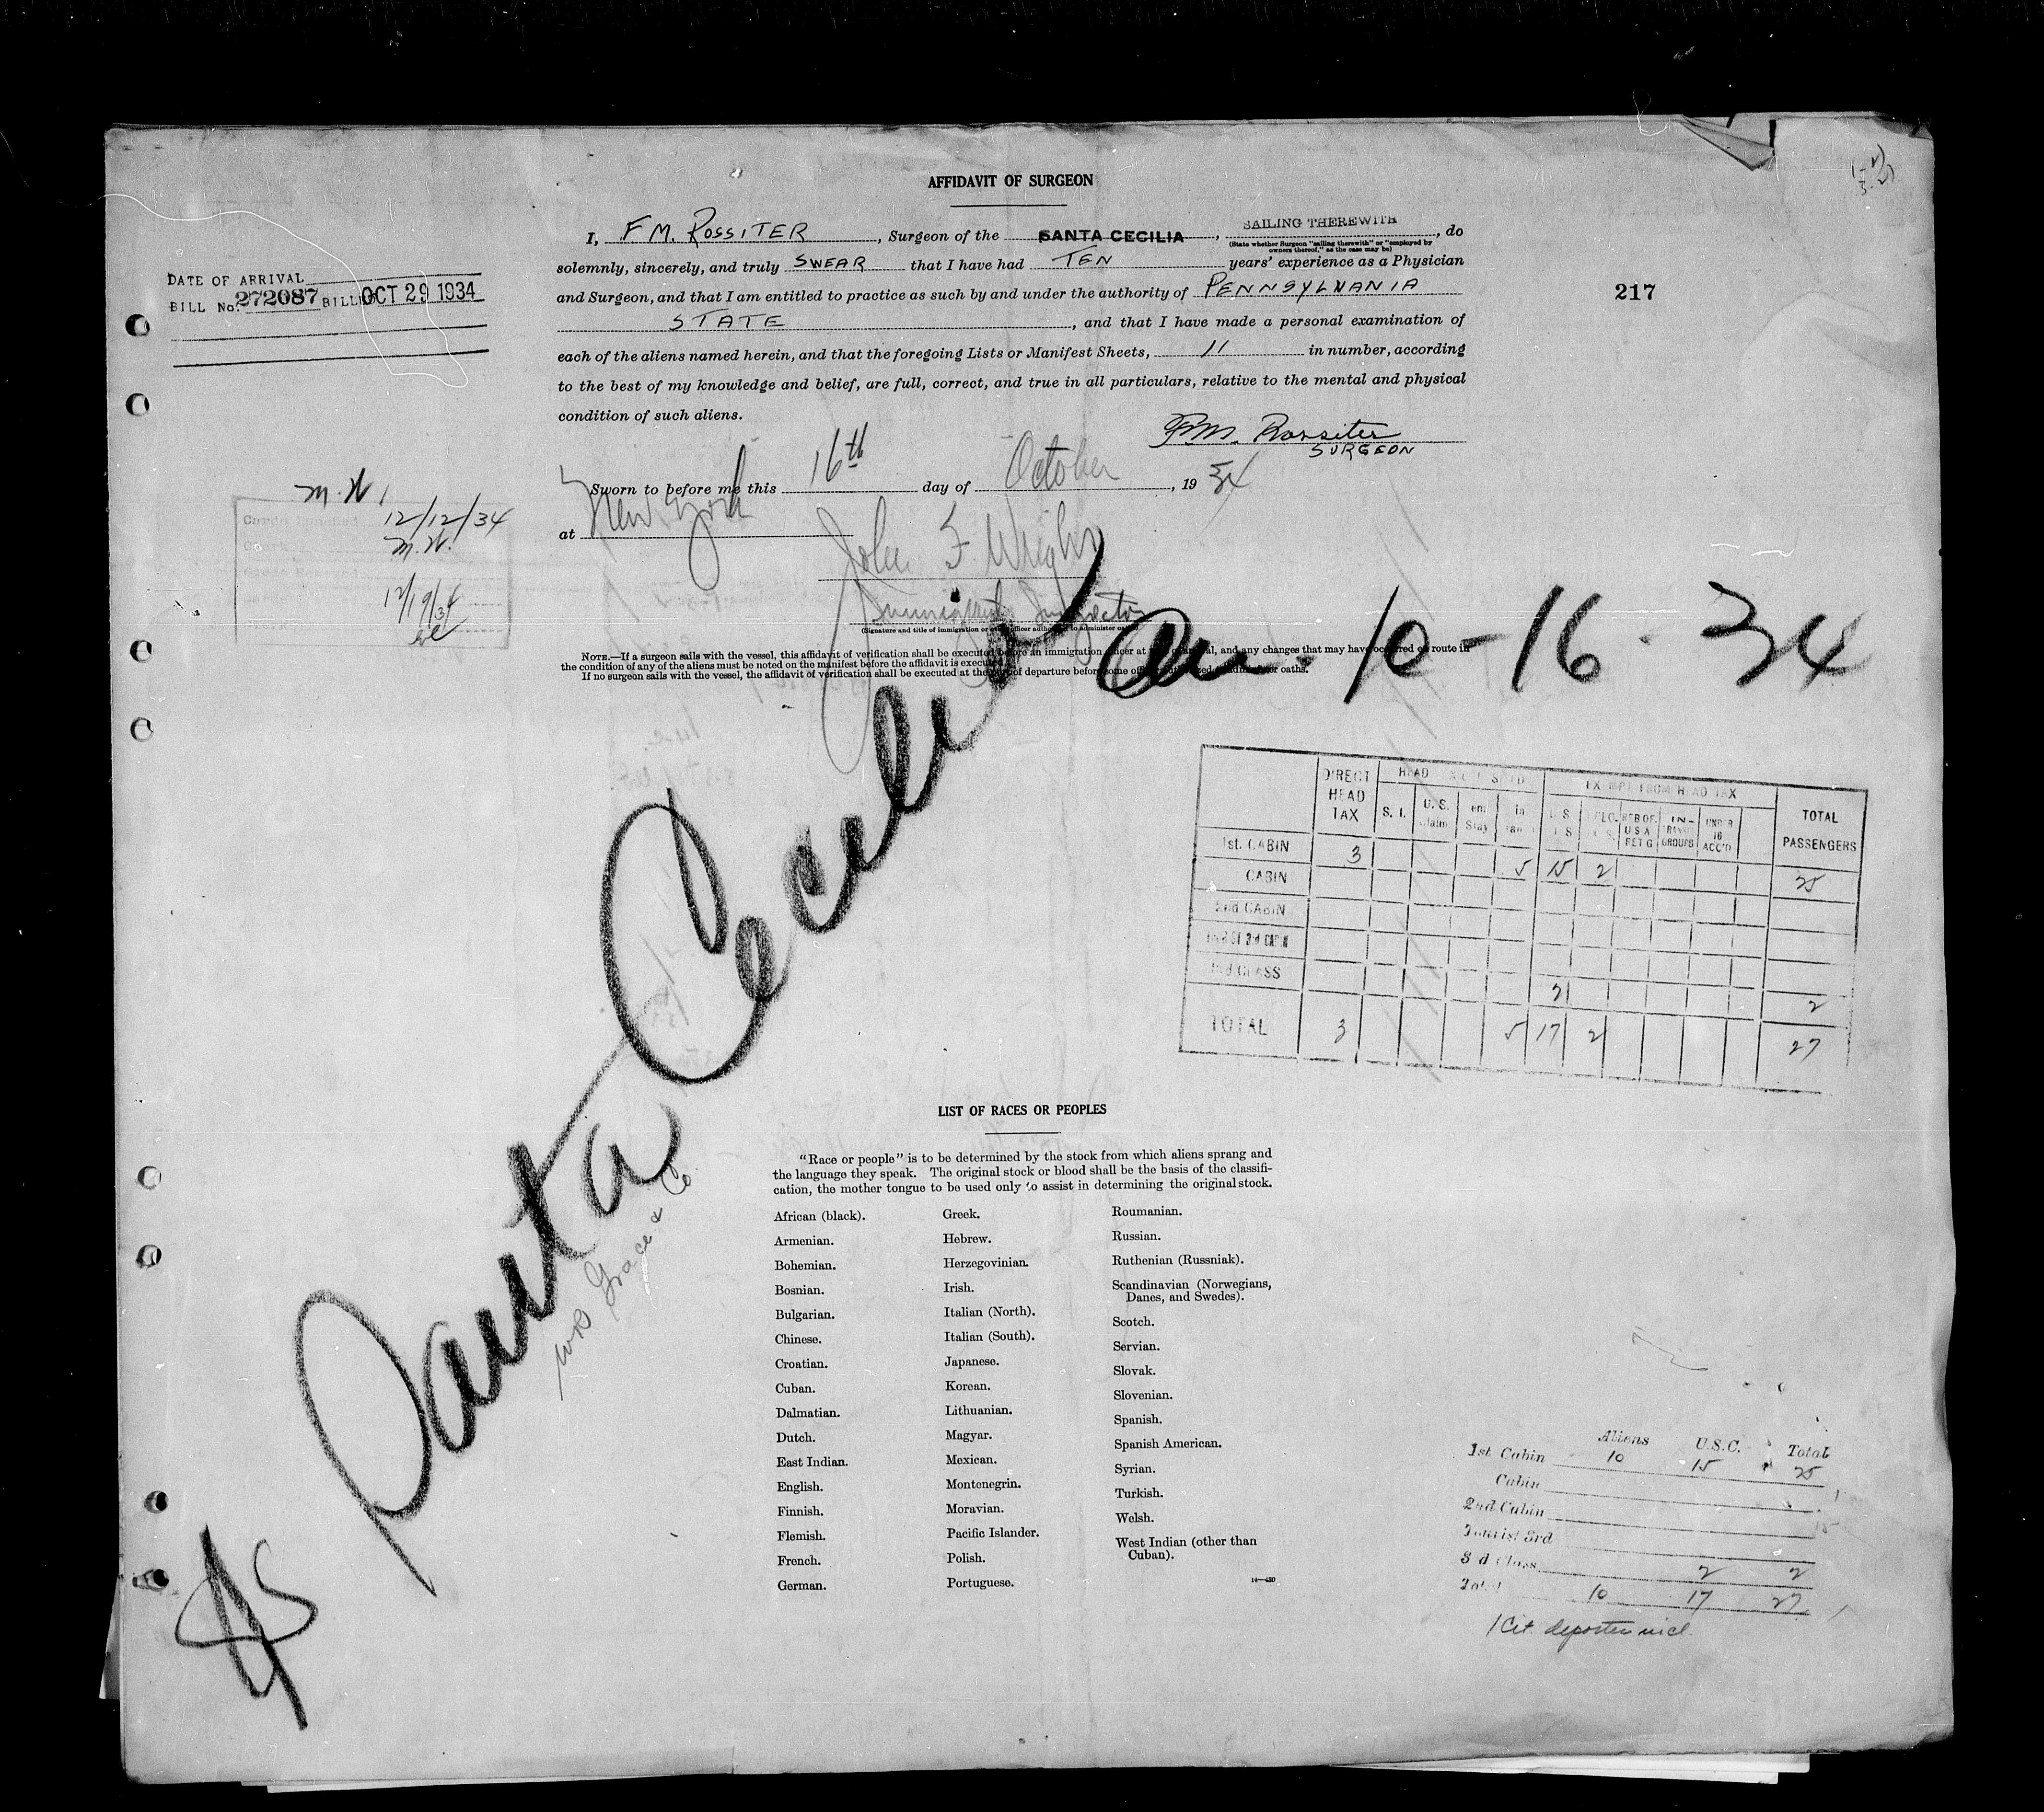 1-2)
3-2)
AFFIDAVIT OF SURGEON
I, F M. ROSSITER, Surgeon of the SANTA CECILIA, SAILING THEREWITH, do
(State whether Surgeon "sailing therewith" or "employed by
owners thereof," as the case may be)
solemnly, sincerely, and truly SWEAR that I have had TEN years' experience as a Physician
and Surgeon, and that I am entitled to practice as such by and under the authority of PENNSYLVANIA
STATE, and that I have made a personal examination of
each of the aliens named herein, and that the foregoing Lists or Manifest Sheets, 11 in number, according
to the best of my knowledge and belief, are full, correct, and true in all particulars, relative to the mental and physical
condition of such aliens.
F.M. Rossiter
SURGEON
DATE OF ARRIVAL
BILL No. 272087 BILLED OCT 29 1934
217
Sworn to before me this 16th day of October, 19 34
at New York
John F. Wright
Immigrant Inspector
(Signature and title of immigration or other officer authorized to administer oaths)
NOTE.—If a surgeon sails with the vessel, this affidavit of verification shall be executed before an immigration officer at port of arrival, and any changes that may have occurred en route in
the condition of any of the aliens must be noted on the manifest before the affidavit is executed.
If no surgeon sails with the vessel, the affidavit of verification shall be executed at the port of departure before some officer authorized to administer oaths.
M. W.
Cards Punched
12/12/34
M. W.
12/19/34
SS Santa Cecilia
Arr. 10-16-34
WR Grace & Co
DIRECT HEAD TAX
HEAD TAX
S. I.
U. S. Claim
EXEMPT FROM HEAD TAX
IN-TRANSIT GROUPS
UNDER 16 ACC'D
TOTAL PASSENGERS
1st. CABIN 3 5 15 2 25
CABIN
2nd CABIN
3rd CLASS 2 2
TOTAL 3 5 17 2 27
LIST OF RACES OR PEOPLES
"Race or people" is to be determined by the stock from which aliens sprang and
the language they speak. The original stock or blood shall be the basis of the classifi-
cation, the mother tongue to be used only to assist in determining the original stock.
African (black).
Armenian.
Bohemian.
Bosnian.
Bulgarian.
Chinese.
Croatian.
Cuban.
Dalmatian.
Dutch.
East Indian.
English.
Finnish.
Flemish.
French.
German.
Greek.
Hebrew.
Herzegovinian.
Irish.
Italian (North).
Italian (South).
Japanese.
Korean.
Lithuanian.
Magyar.
Mexican.
Montenegrin.
Moravian.
Pacific Islander.
Polish.
Portuguese.
Roumanian.
Russian.
Ruthenian (Russniak).
Scandinavian (Norwegians,
Danes, and Swedes).
Scotch.
Servian.
Slovak.
Slovenian.
Spanish.
Spanish American.
Syrian.
Turkish.
Welsh.
West Indian (other than
Cuban).
Aliens U.S.C. Total
1st. Cabin 10 15 25
Cabin
2nd Cabin
Tourist 3rd
3d Class 2 2
Total 10 17 27
1 Cit. deportee incl.